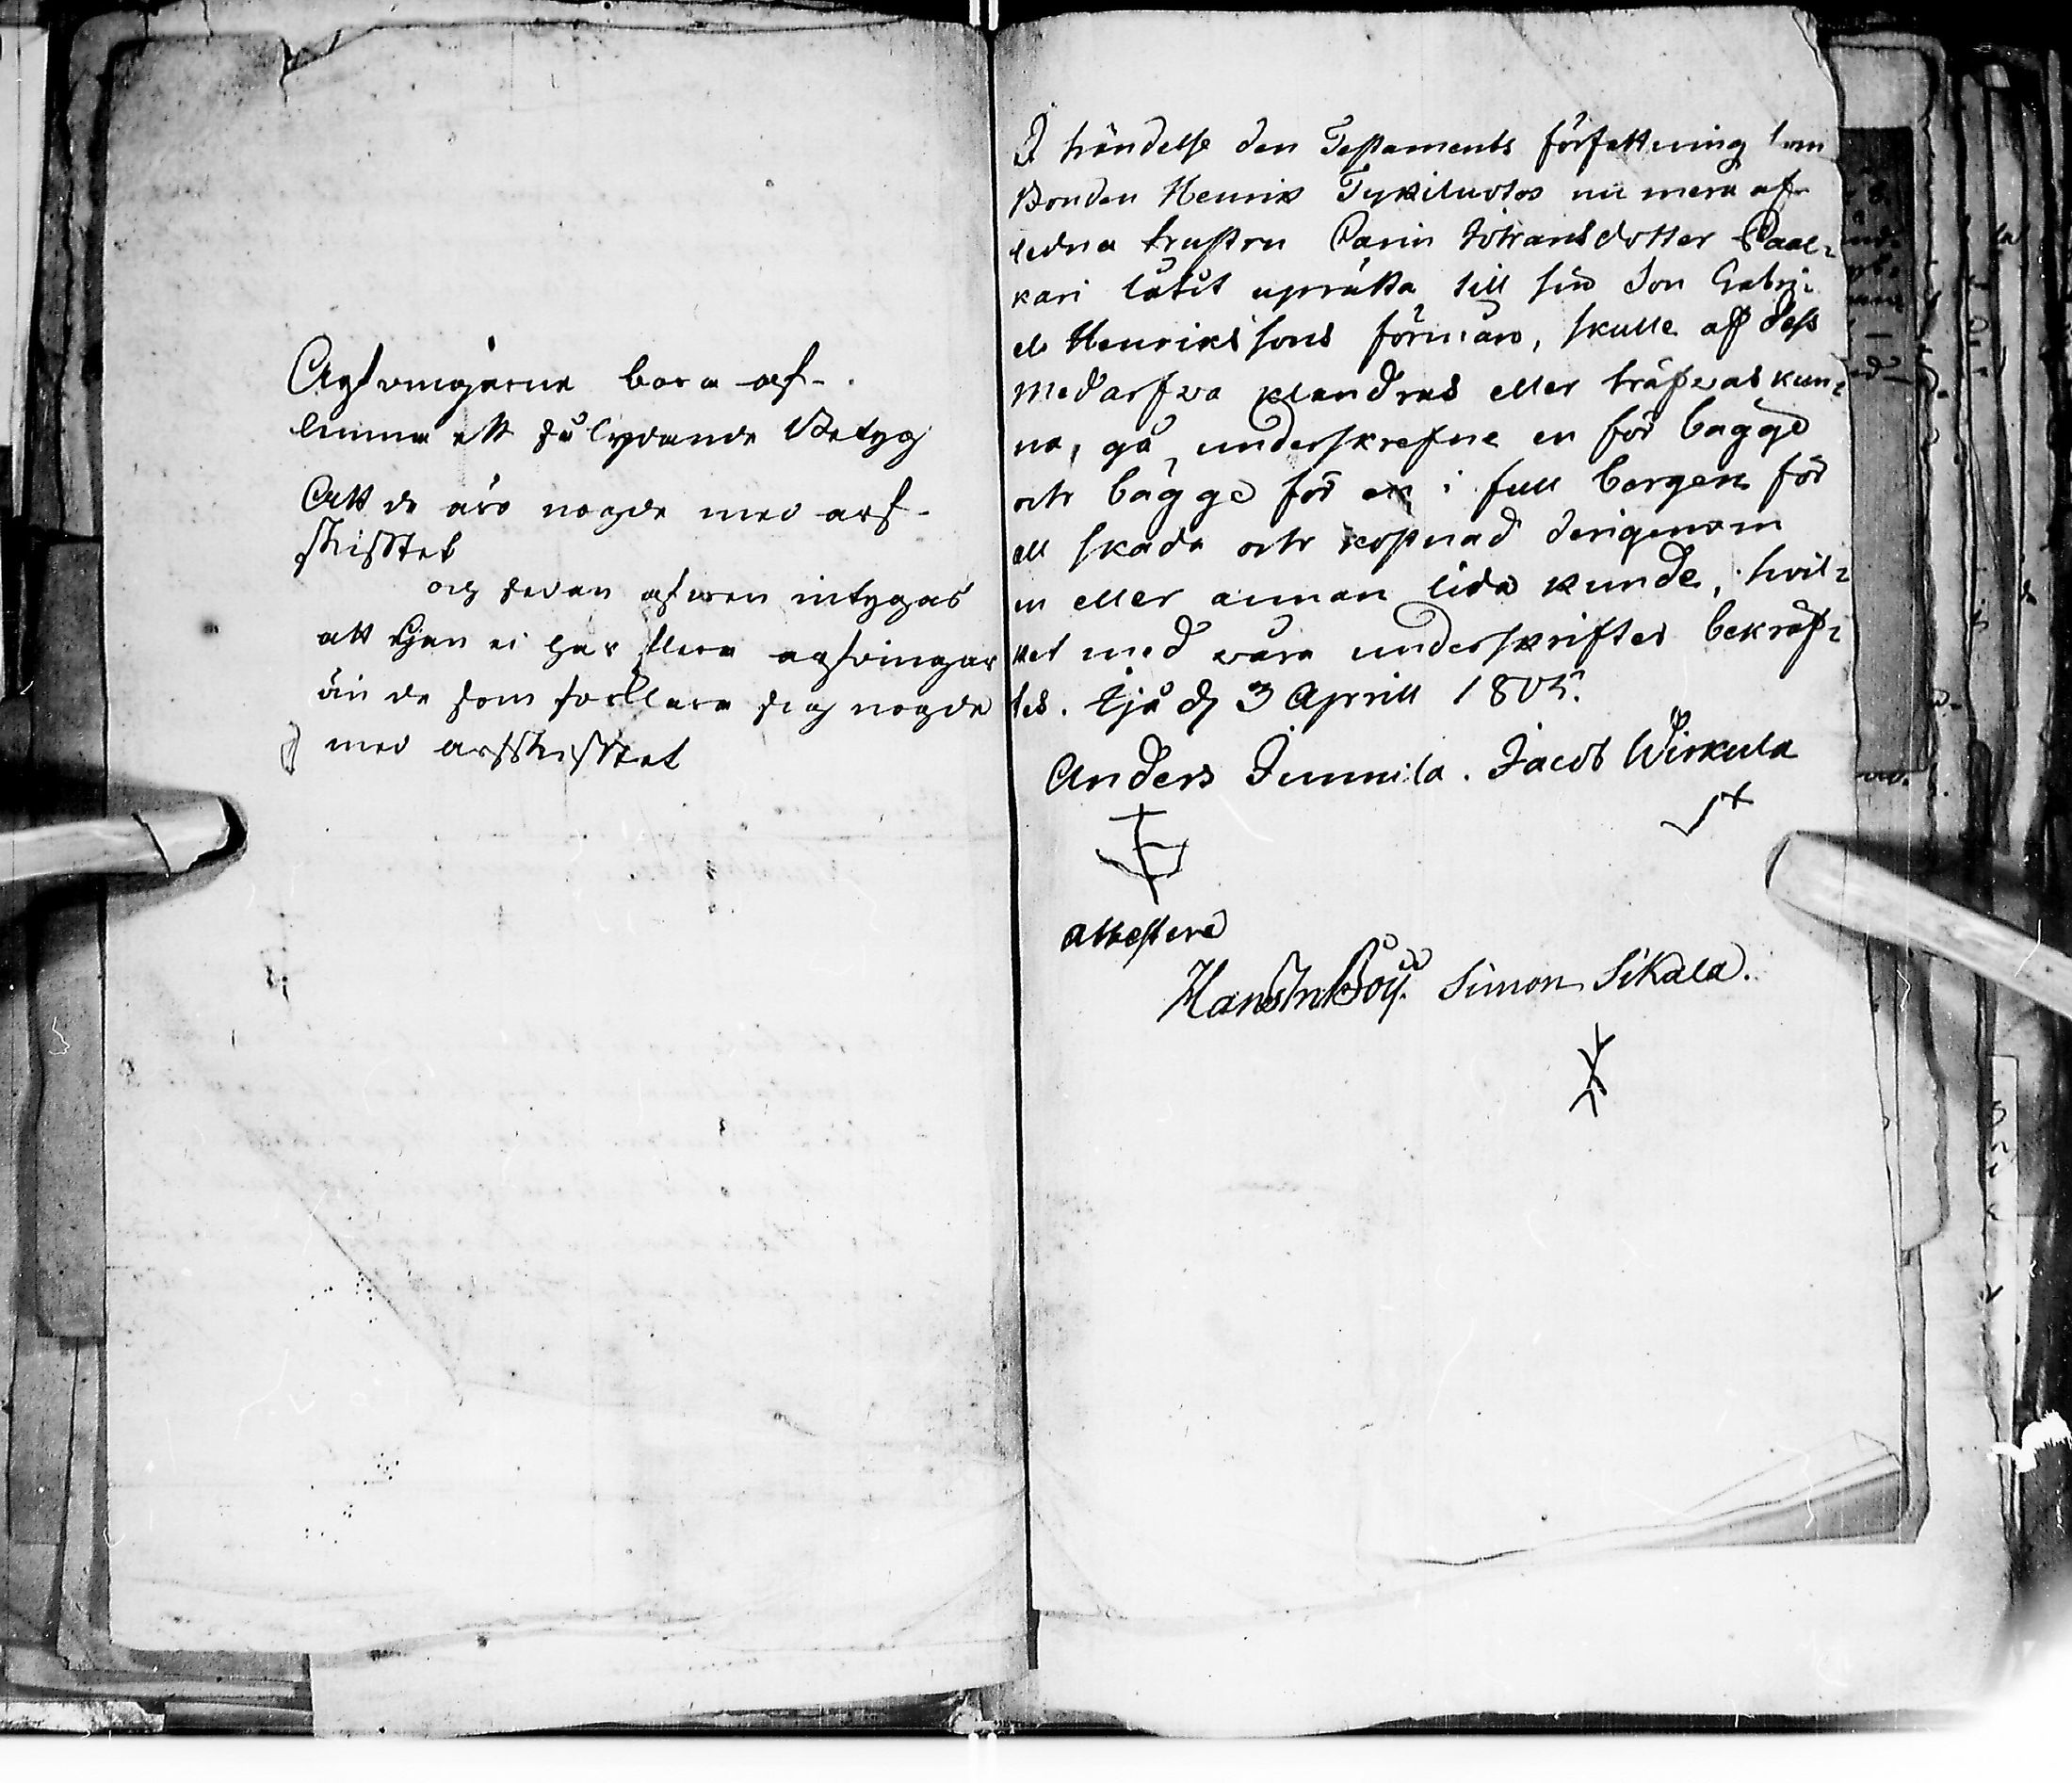 Arfvingarne bora af-
lemna ett så lydande Betyg
Att de äro nogde med arf-
skifftet
och sedan afwen intygas
att Han ei har flera arfvingar
än de som forklara sig nogde
med arfskifftet
I händelse den Testaments förfettning som
Bonden Henrik Tykiluotos nu mera af-
ledna hustru Carin Johansdotter Paal=
kari låtit uprätta till sin Son Gabri=
els Henrikssons förmån, skulle af dess
Medarfwa klandras eller häfwas kun=
na, gå underskrefne en för bägge
och bägge för en i full borgen för
all skada och kostnad derigenom
en eller annan lida kunde, hvil=
ket med våra underskrifter bekräf=
tes. Ijå d 3 Aprill 1805.
Anders Junnila. Jacob Wirkula
attestera
Hans Simon Sikala.